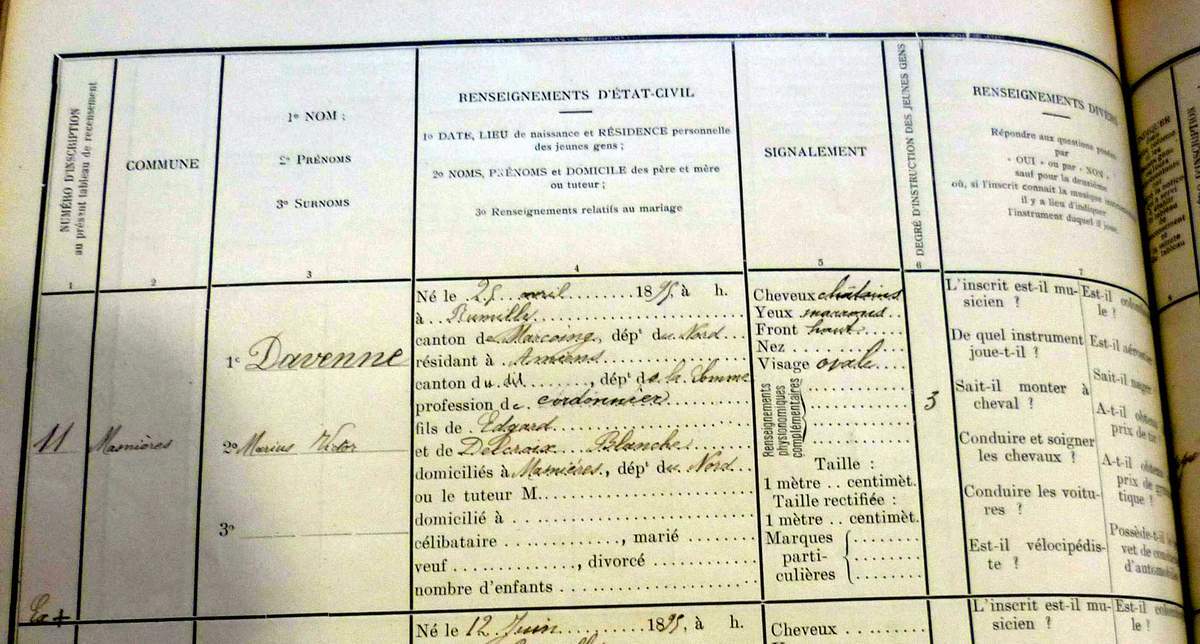 NUMÉRO D'INSCRIPTION
au présent tableau de recensement
COMMUNE
1º NOM :
2º PRÉNOMS
3º SURNOMS
RENSEIGNEMENTS D'ÉTAT-CIVIL
1º DATE, LIEU de naissance et RÉSIDENCE personnelle
des jeunes gens ;
2º NOMS, PRÉNOMS et DOMICILE des père et mère
ou tuteur ;
3º Renseignements relatifs au mariage
SIGNALEMENT
DEGRÉ D'INSTRUCTION DES JEUNES GENS
RENSEIGNEMENTS DIVERS
Répondre aux questions posées
par
« OUI » ou par « NON »,
sauf pour la deuxième
où, si l'inscrit connait la musique
il y a lieu d'indiquer
l'instrument duquel il joue.
1
2
3
4
5
6
7
11
Masnières
1º Davenne
2º Marius Victor
3º
Né le 25 avril 1895, à h.
à Rumilly
canton de Marcoing, dépt du Nord
résidant à Amiens
canton du dit, dépt de la Somme
profession de cordonnier
fils de Edgard
et de Delcroix Blanche
domiciliés à Masnières, dépt du Nord
ou le tuteur M.
domicilié à
célibataire , marié
veuf , divorcé
nombre d'enfants
Cheveux châtains
Yeux marrons
Front haut
Nez
Visage ovale
Renseignements
physionomiques
complémentaires
Taille :
1 mètre .. centimèt.
Taille rectifiée :
1 mètre .. centimèt.
Marques
parti-
culières
3
L'inscrit est-il mu-
sicien ?
De quel instrument
joue-t-il ?
Sait-il monter à
cheval ?
Conduire et soigner
les chevaux ?
Conduire les voitu-
res ?
Est-il vélocipédis-
te ?
Est-il
le ?
Est-il
Sait-il
A-t-il
prix de
A-t-il
prix de
tique ?
Possède-t-il
vet de
d'automobiles
Né le 12 Juin 1895, à h.
Cheveux
L'inscrit est-il mu-
sicien ?
Est-il
le ?